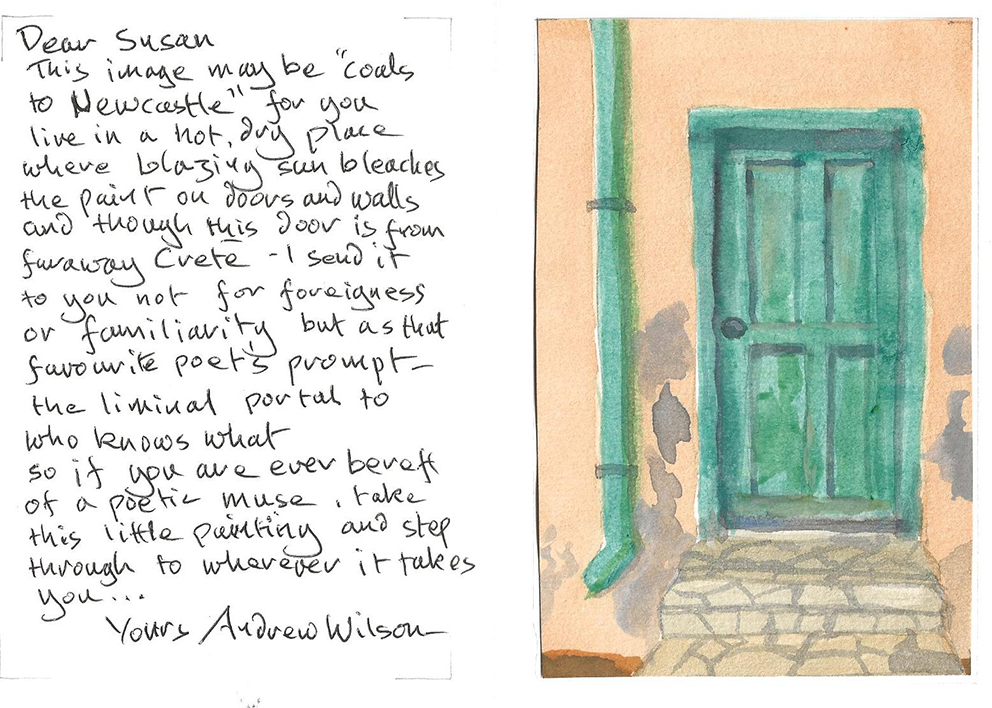 Dear Susan
This image may be "coals
to Newcastle" for you
live in a hot, dry place
where blazing sun bleaches
the paint on doors and walls
and though this door is from
faraway Crete - I send it
to you not for foreigness
or familiarity but as that
favourite poet's prompt -
the liminal portal to
who knows what
so if you are ever bereft
of a poetic muse, take
this little painting and step
through to wherever it takes
you...
Yours Andrew Wilson